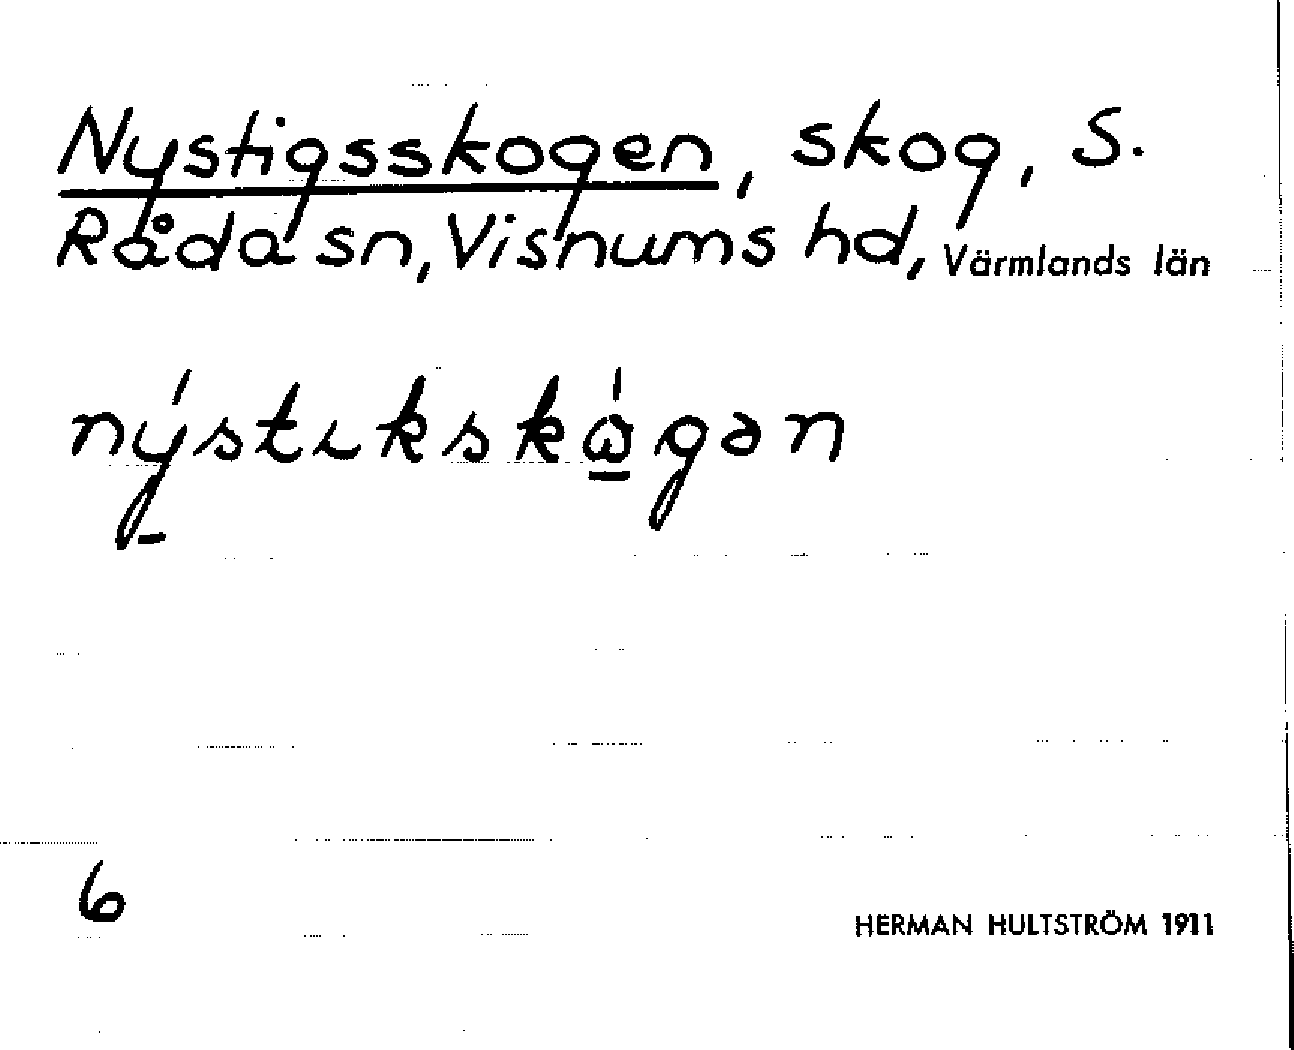 Nystigsskogen, skog, S.
Råda sn, Visnums hd, Värmlands län
nýstɩkskǫ́gən
6
HERMAN HULTSTRÖM 1911